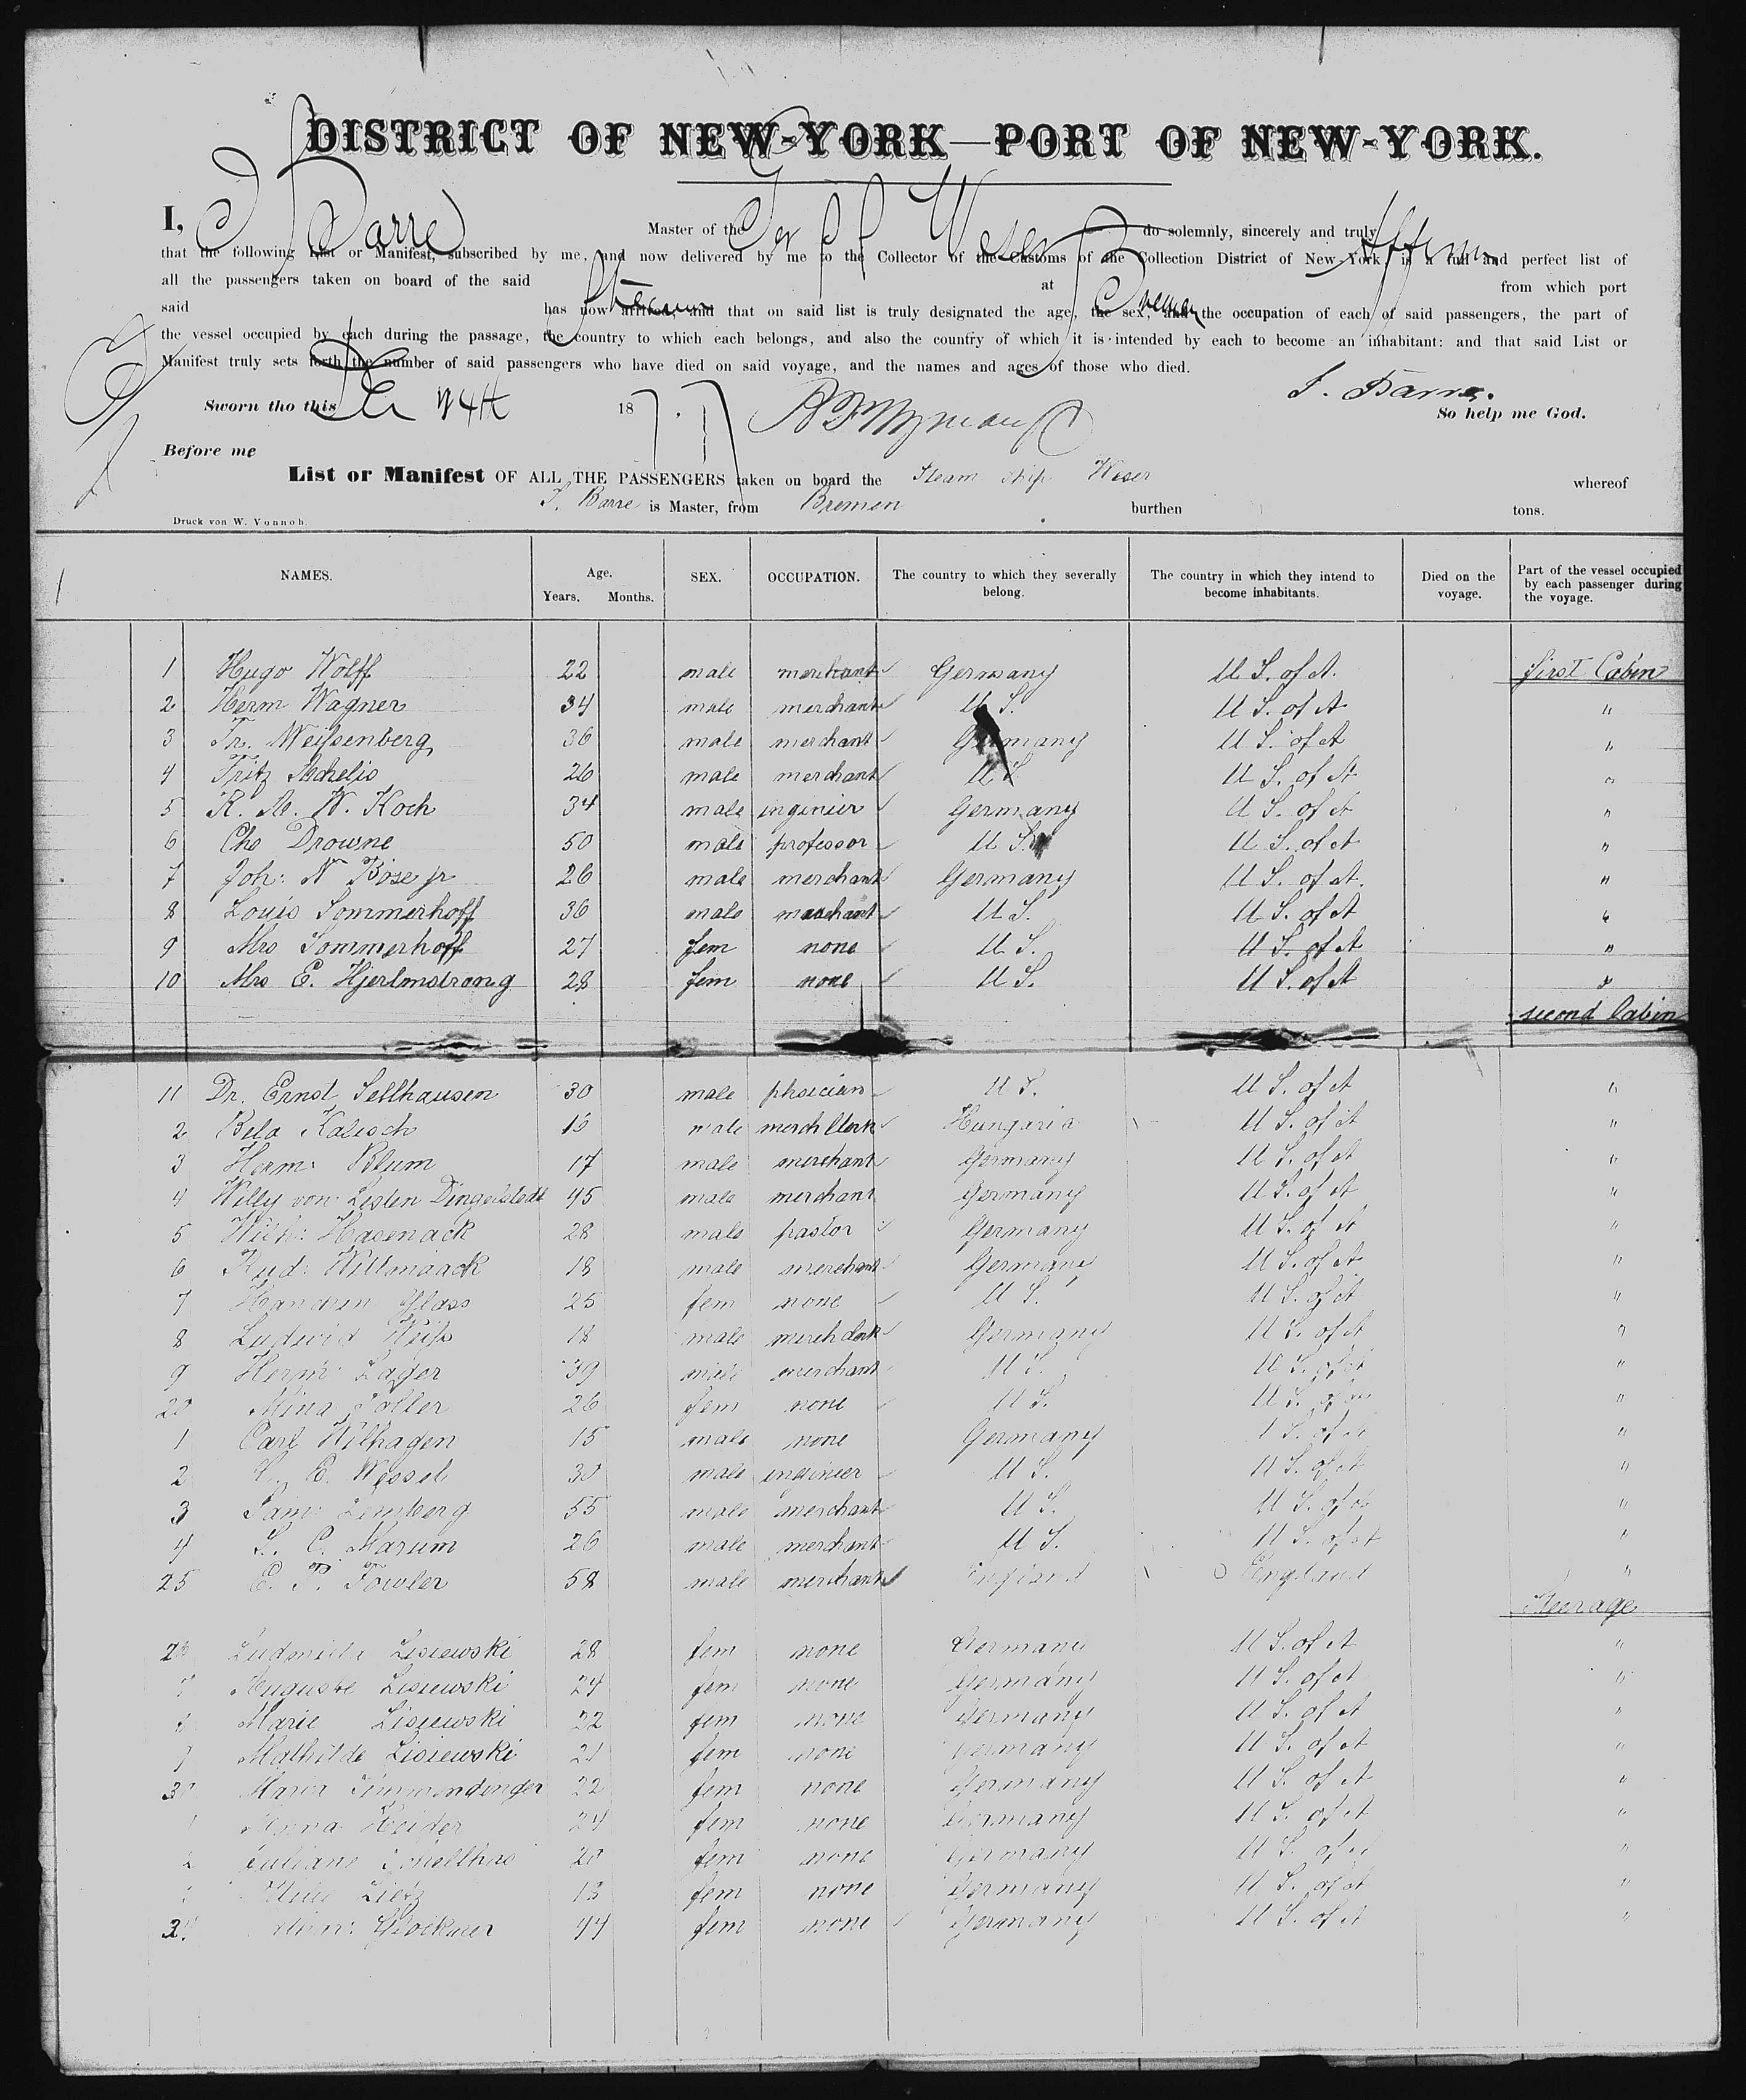 DISTRICT OF NEW-YORK—PORT OF NEW-YORK.
I, J Barre Master of the Weser do solemnly, sincerely and truly Affirm
that the following List or Manifest, subscribed by me, and now delivered by me to the Collector of the Customs of the Collection District of New-York, is a full and perfect list of
all the passengers taken on board of the said Steamer at Bremen from which port
said has now arrived; and that on said list is truly designated the age, the sex, and the occupation of each of said passengers, the part of
the vessel occupied by each during the passage, the country to which each belongs, and also the country of which it is intended by each to become an inhabitant: and that said List or
Manifest truly sets forth the number of said passengers who have died on said voyage, and the names and ages of those who died.
J. Barre.
Sworn tho this 24th 1877. So help me God.
Before me
List or Manifest OF ALL THE PASSENGERS taken on board the Steam ship Weser whereof
J. Barre is Master, from Bremen burthen tons.
Druck von W. Vonnoh.
NAMES. Age. Years. Months. SEX. OCCUPATION. The country to which they severally belong. The country in which they intend to become inhabitants. Died on the voyage. Part of the vessel occupied by each passenger during the voyage.
1 Hugo Wolff 22 male merchant Germany U S. of A. first Cabin
2 Herm Wagner 34 male merchant U S. U S. of A "
3 Fr. Weißenberg 36 male merchant Germany U S. of A "
4 Fritz Achelis 26 male merchant U S U S. of A "
5 R. W. Koch 34 male inginier Germany U S. of A "
6 Chs Drowne 50 male professor U S. U S. of A "
7 Joh: N Böse jr 26 male merchant Germany U S. of A. "
8 Louis Sommerhoff 36 male merchant U S. U S. of A "
9 Mrs Sommerhoff 27 fem none U S. U S. of A "
10 Mrs E. Hjerlmstrong 28 fem none U S. U S. of A "
second Cabin
11 Dr. Ernst Sellhausen 30 male phsician U S. U S. of A "
2 Bela Kalisch male merch Clerk Hungaria U S. of A "
3 Herm: Blum 17 male merchant Germany U S. of A "
4 Willy von Listen Dingelstedt 45 male merchant Germany U S. of A "
5 Wilh: Hasenack 28 male pastor Germany U S. of A "
6 Rud: Willmaack 18 male merchant Germany U S. of A "
7 Glass 25 fem none U S. U S. of A "
8 Ludwig Weiß 18 male merch clerk Germany U S. of A "
9 Herm: Lager 39 male merchant U S. U S. of A "
20 Mina Toller 26 fem none U S. U S. of A "
1 Carl Wilhagen 15 male none Germany U S. of A "
2 E. Wessel 30 male inginier U S. U S. of A "
3 Sam: Lemberg 55 male merchant U S. U S. of A "
4 S. C. Marum 26 male merchant U S. U S. of A "
25 E. P. Fowler 58 male merchant England England "
Steerage
26 Ludmilla Lisiewski 28 fem none Germany U S. of A "
7 Auguste Lisiewski 24 fem none Germany U S. of A "
8 Marie Lisiewski 22 fem none Germany U S. of A "
9 Mathilde Lisiewski 21 fem none Germany U S. of A "
30 Maria 22 fem none Germany U S. of A "
1 Anna 24 fem none Germany U S. of A "
2 Juliane 20 fem none Germany U S. of A "
Lietz 18 fem none Germany U S. of A "
Glockner 44 fem none Germany U S. of A "